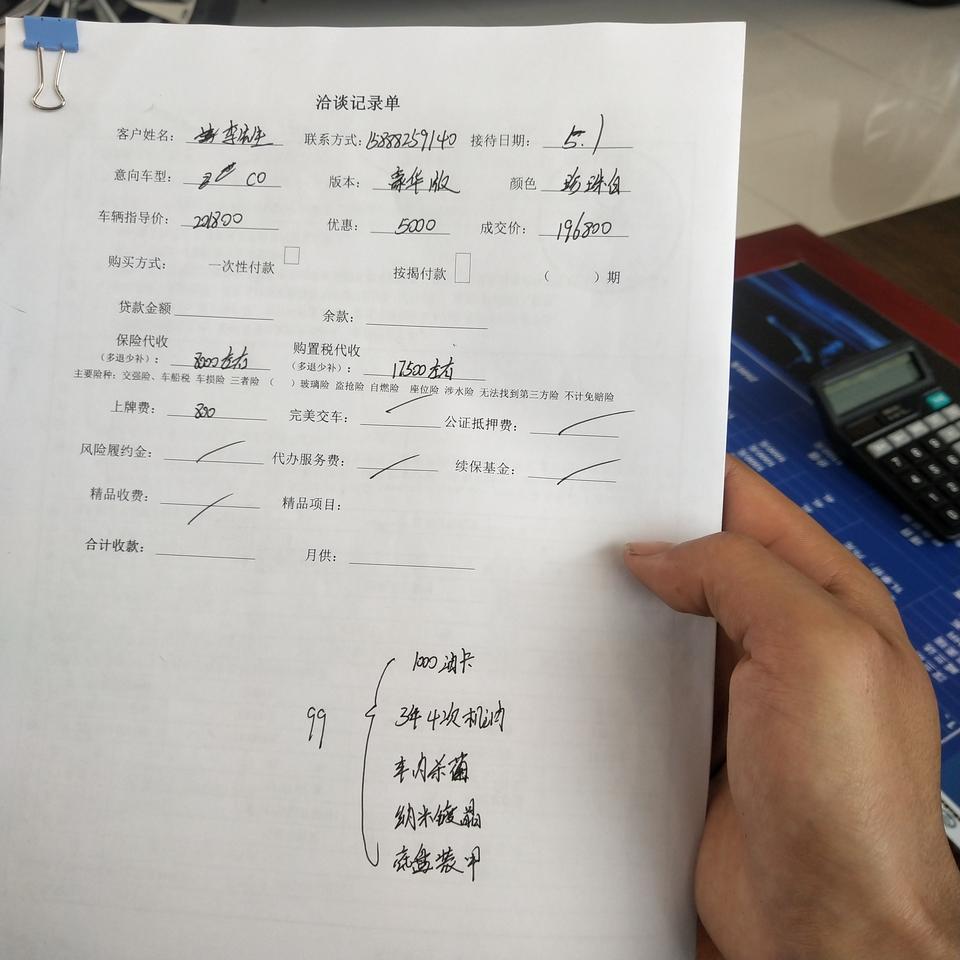 洽谈记录单
客户姓名： 李先生 联系方式：15888259140 接待日期： 5.1
意向车型： CO 版本： 豪华版 颜色 珍珠白
车辆指导价： 201800 优惠： 5000 成交价： 196800
购买方式： 一次性付款 按揭付款 （ ）期
贷款金额 余款：
保险代收 购置税代收
（多退少补）： 8000左右 （多退少补）： 17500左右
主要险种：交强险、车船税 车损险 三者险（ ）玻璃险 盗抢险 自燃险 座位险 涉水险 无法找到第三方险 不计免赔险
上牌费： 800 完美交车： 公证抵押费：
风险履约金： 代办服务费： 续保基金：
精品收费： 精品项目：
合计收款： 月供：
1000油卡
99 3年4次机油
车内杀菌
纳米镀晶
底盘装甲